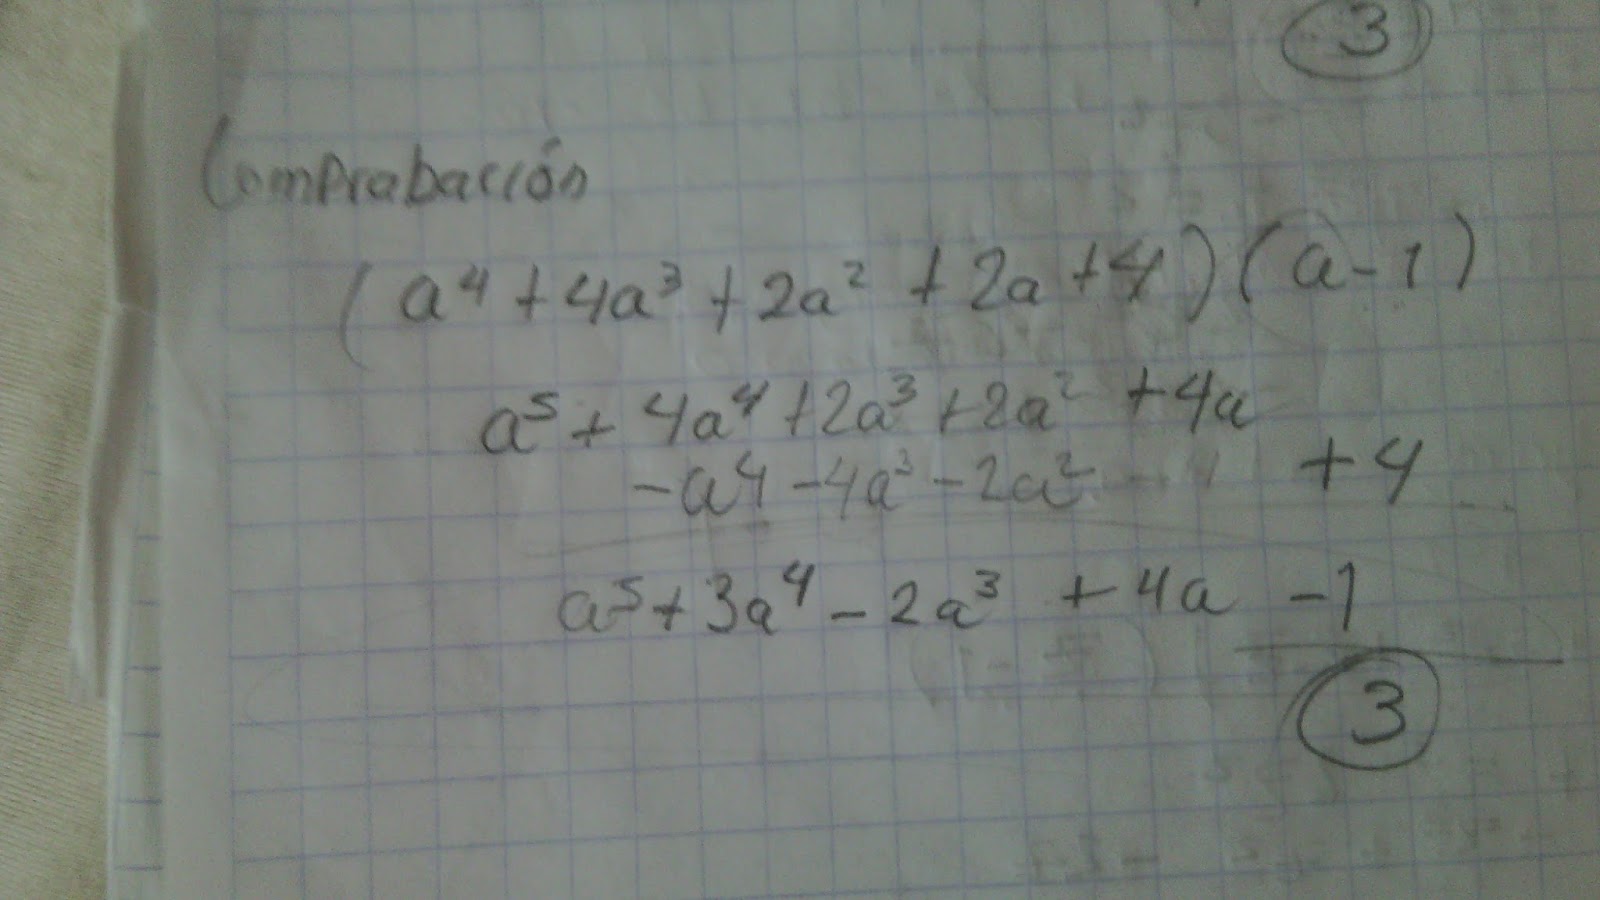 3
Comprabación
(a⁴ + 4a³ + 2a² + 2a + 4) (a - 1)
a⁵ + 4a⁴ + 2a³ + 2a² + 4a
- a⁴ - 4a³ - 2a² + 4
a⁵ + 3a⁴ - 2a³ + 4a - 1
3